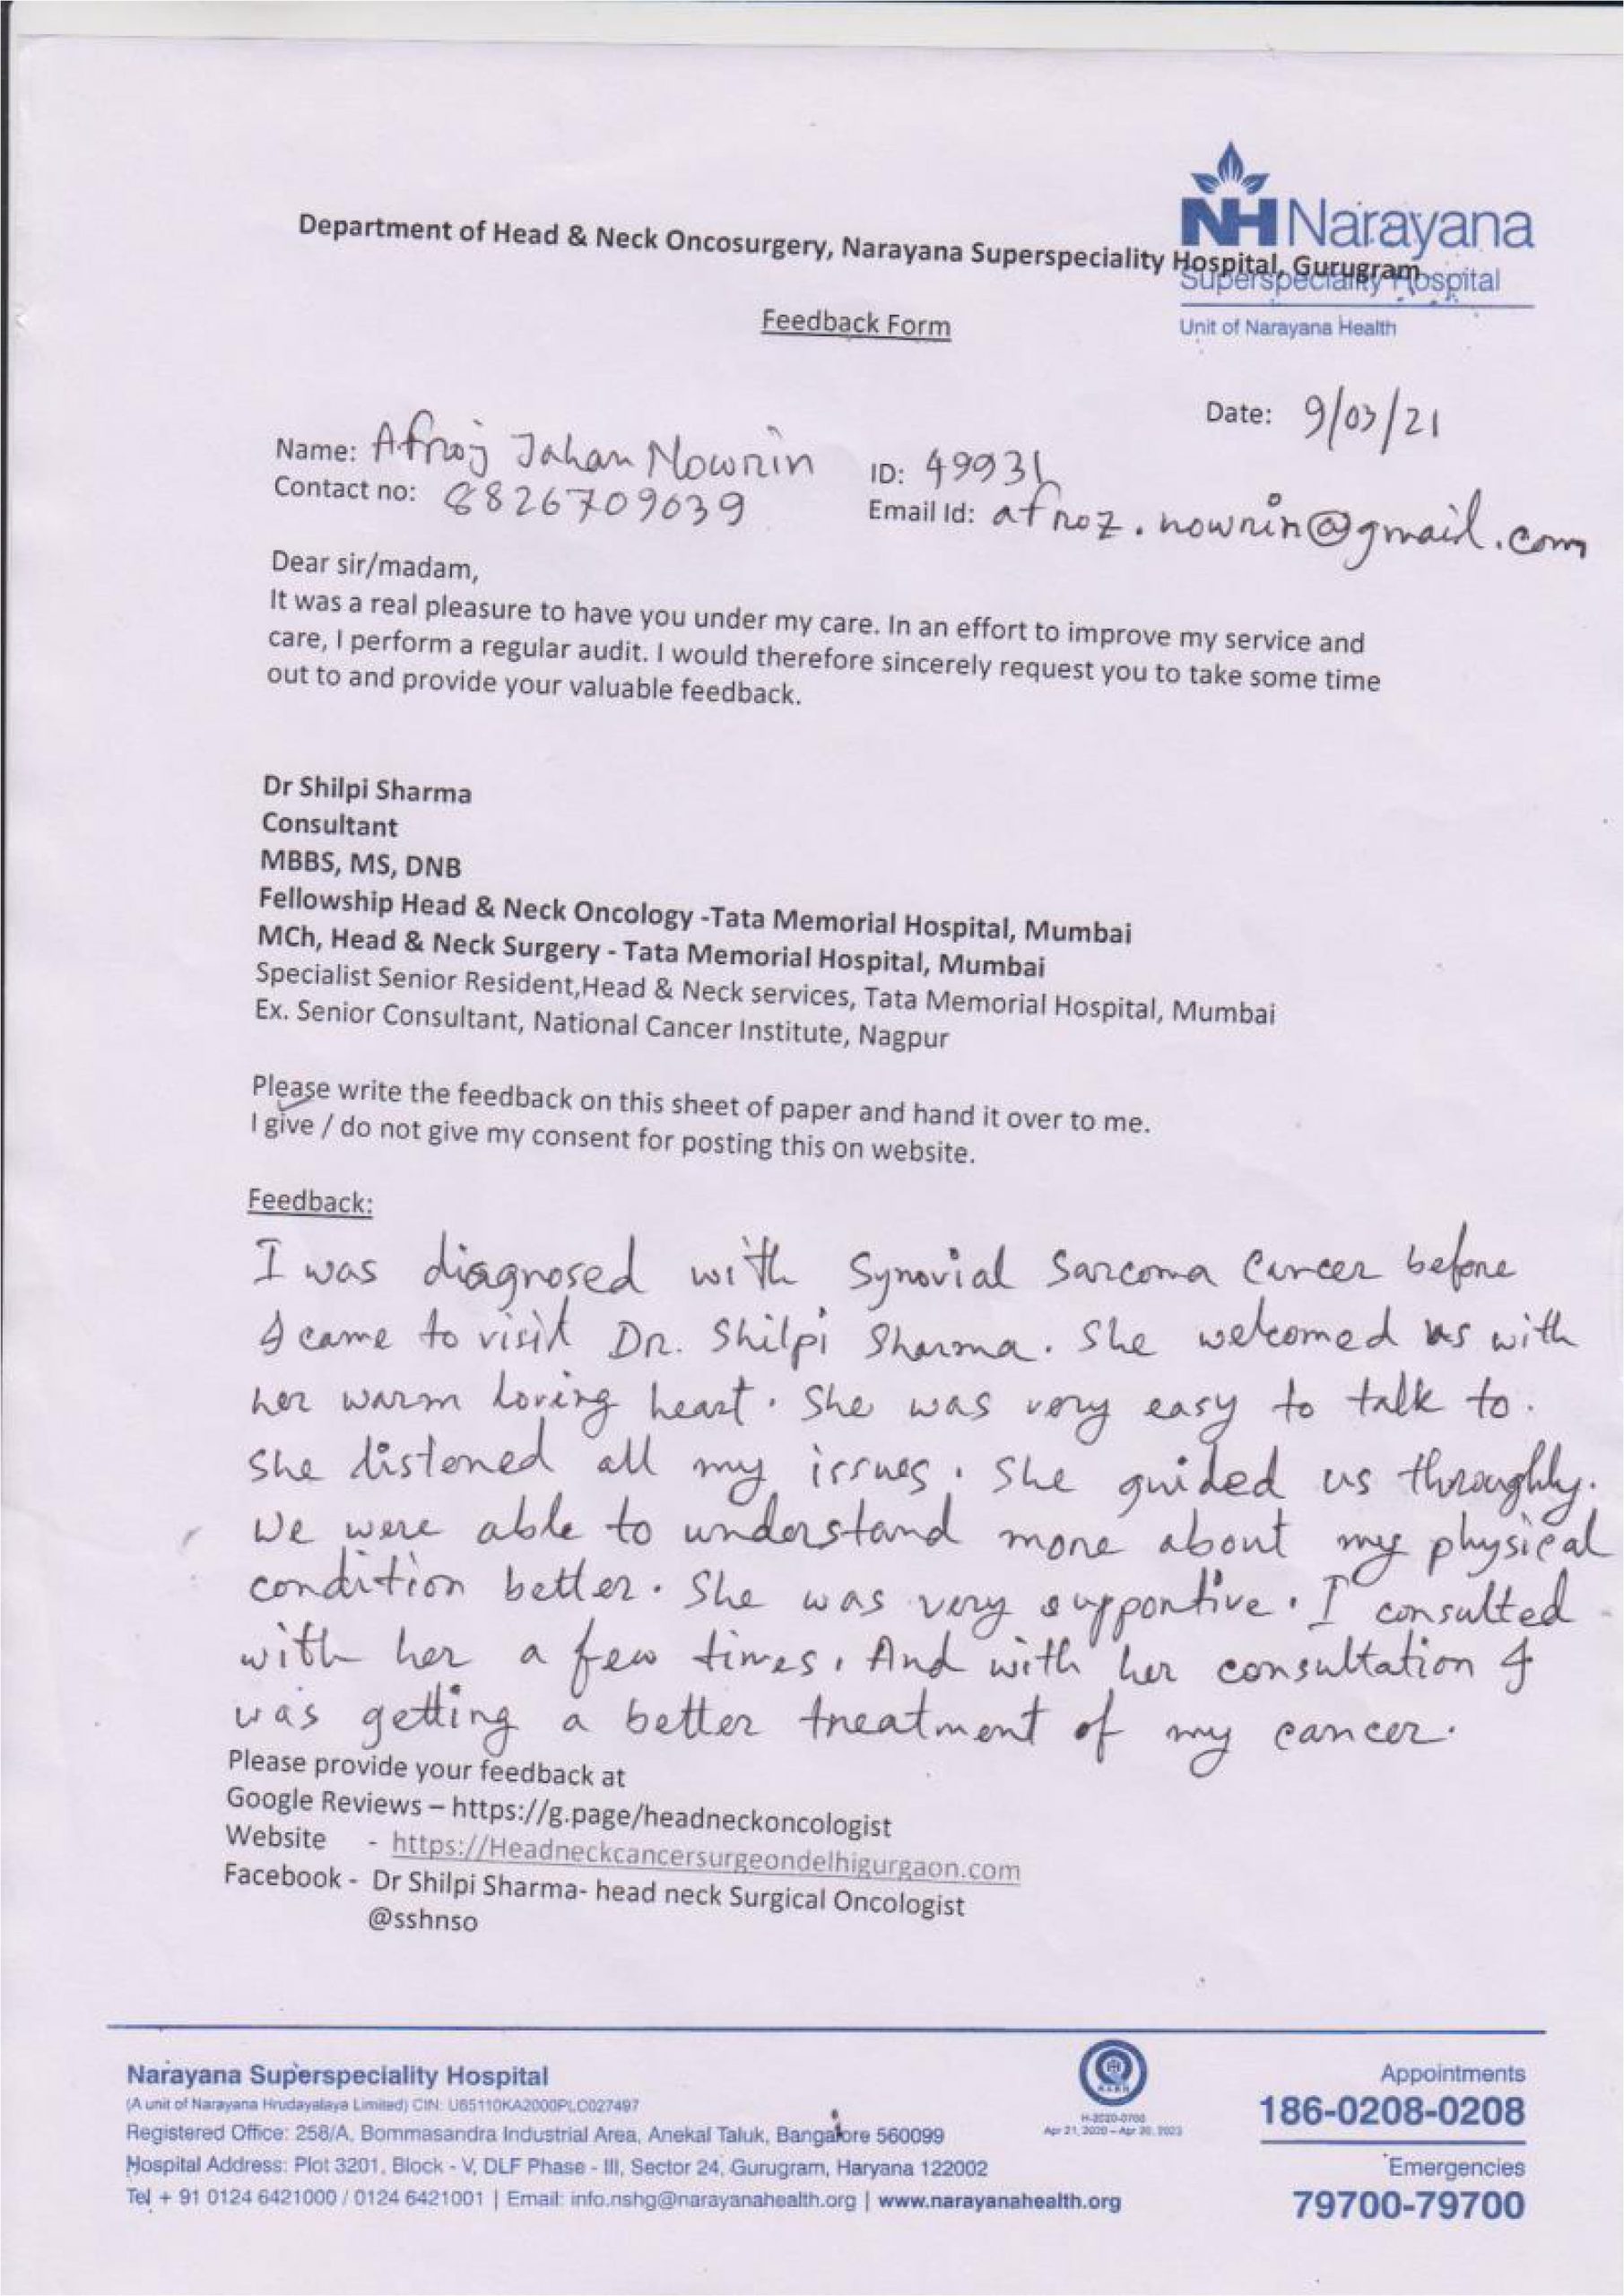 NH Narayana
Superspeciality Hospital
Unit of Narayana Health
Department of Head & Neck Oncosurgery, Narayana Superspeciality Hospital, Gurugram
Feedback Form
Date: 9/03/21
Name: Afroj Jahan Nowrin ID: 49931
Contact no: 8826709039 Email Id: afroz.nowrin@gmail.com
Dear sir/madam,
It was a real pleasure to have you under my care. In an effort to improve my service and
care, I perform a regular audit. I would therefore sincerely request you to take some time
out to and provide your valuable feedback.
Dr Shilpi Sharma
Consultant
MBBS, MS, DNB
Fellowship Head & Neck Oncology -Tata Memorial Hospital, Mumbai
MCh, Head & Neck Surgery - Tata Memorial Hospital, Mumbai
Specialist Senior Resident,Head & Neck services, Tata Memorial Hospital, Mumbai
Ex. Senior Consultant, National Cancer Institute, Nagpur
Please write the feedback on this sheet of paper and hand it over to me.
I give / do not give my consent for posting this on website.
Feedback:
I was diagnosed with Synovial Sarcoma Cancer before
I came to visit Dr. Shilpi Sharma. She welcomed us with
her warm loving heart. She was very easy to talk to.
She listened all my issues. She guided us throughly.
We were able to understand more about my physical
condition better. She was very supportive. I consulted
with her a few times. And with her consultation I
was getting a better treatment of my cancer.
Please provide your feedback at
Google Reviews – https://g.page/headneckoncologist
Website - https://Headneckcancersurgeondelhigurgaon.com
Facebook - Dr Shilpi Sharma- head neck Surgical Oncologist
@sshnso
Narayana Superspeciality Hospital
(A unit of Narayana Hrudayalaya Limited) CIN: U85110KA2000PLC027497
Registered Office: 258/A, Bommasandra Industrial Area, Anekal Taluk, Bangalore 560099
Hospital Address: Plot 3201, Block - V, DLF Phase - III, Sector 24, Gurugram, Haryana 122002
Tel + 91 0124 6421000 / 0124 6421001 | Email: info.nshg@narayanahealth.org | www.narayanahealth.org
H-2020-0700
Apr 21, 2020 – Apr 20, 2023
Appointments
186-0208-0208
Emergencies
79700-79700